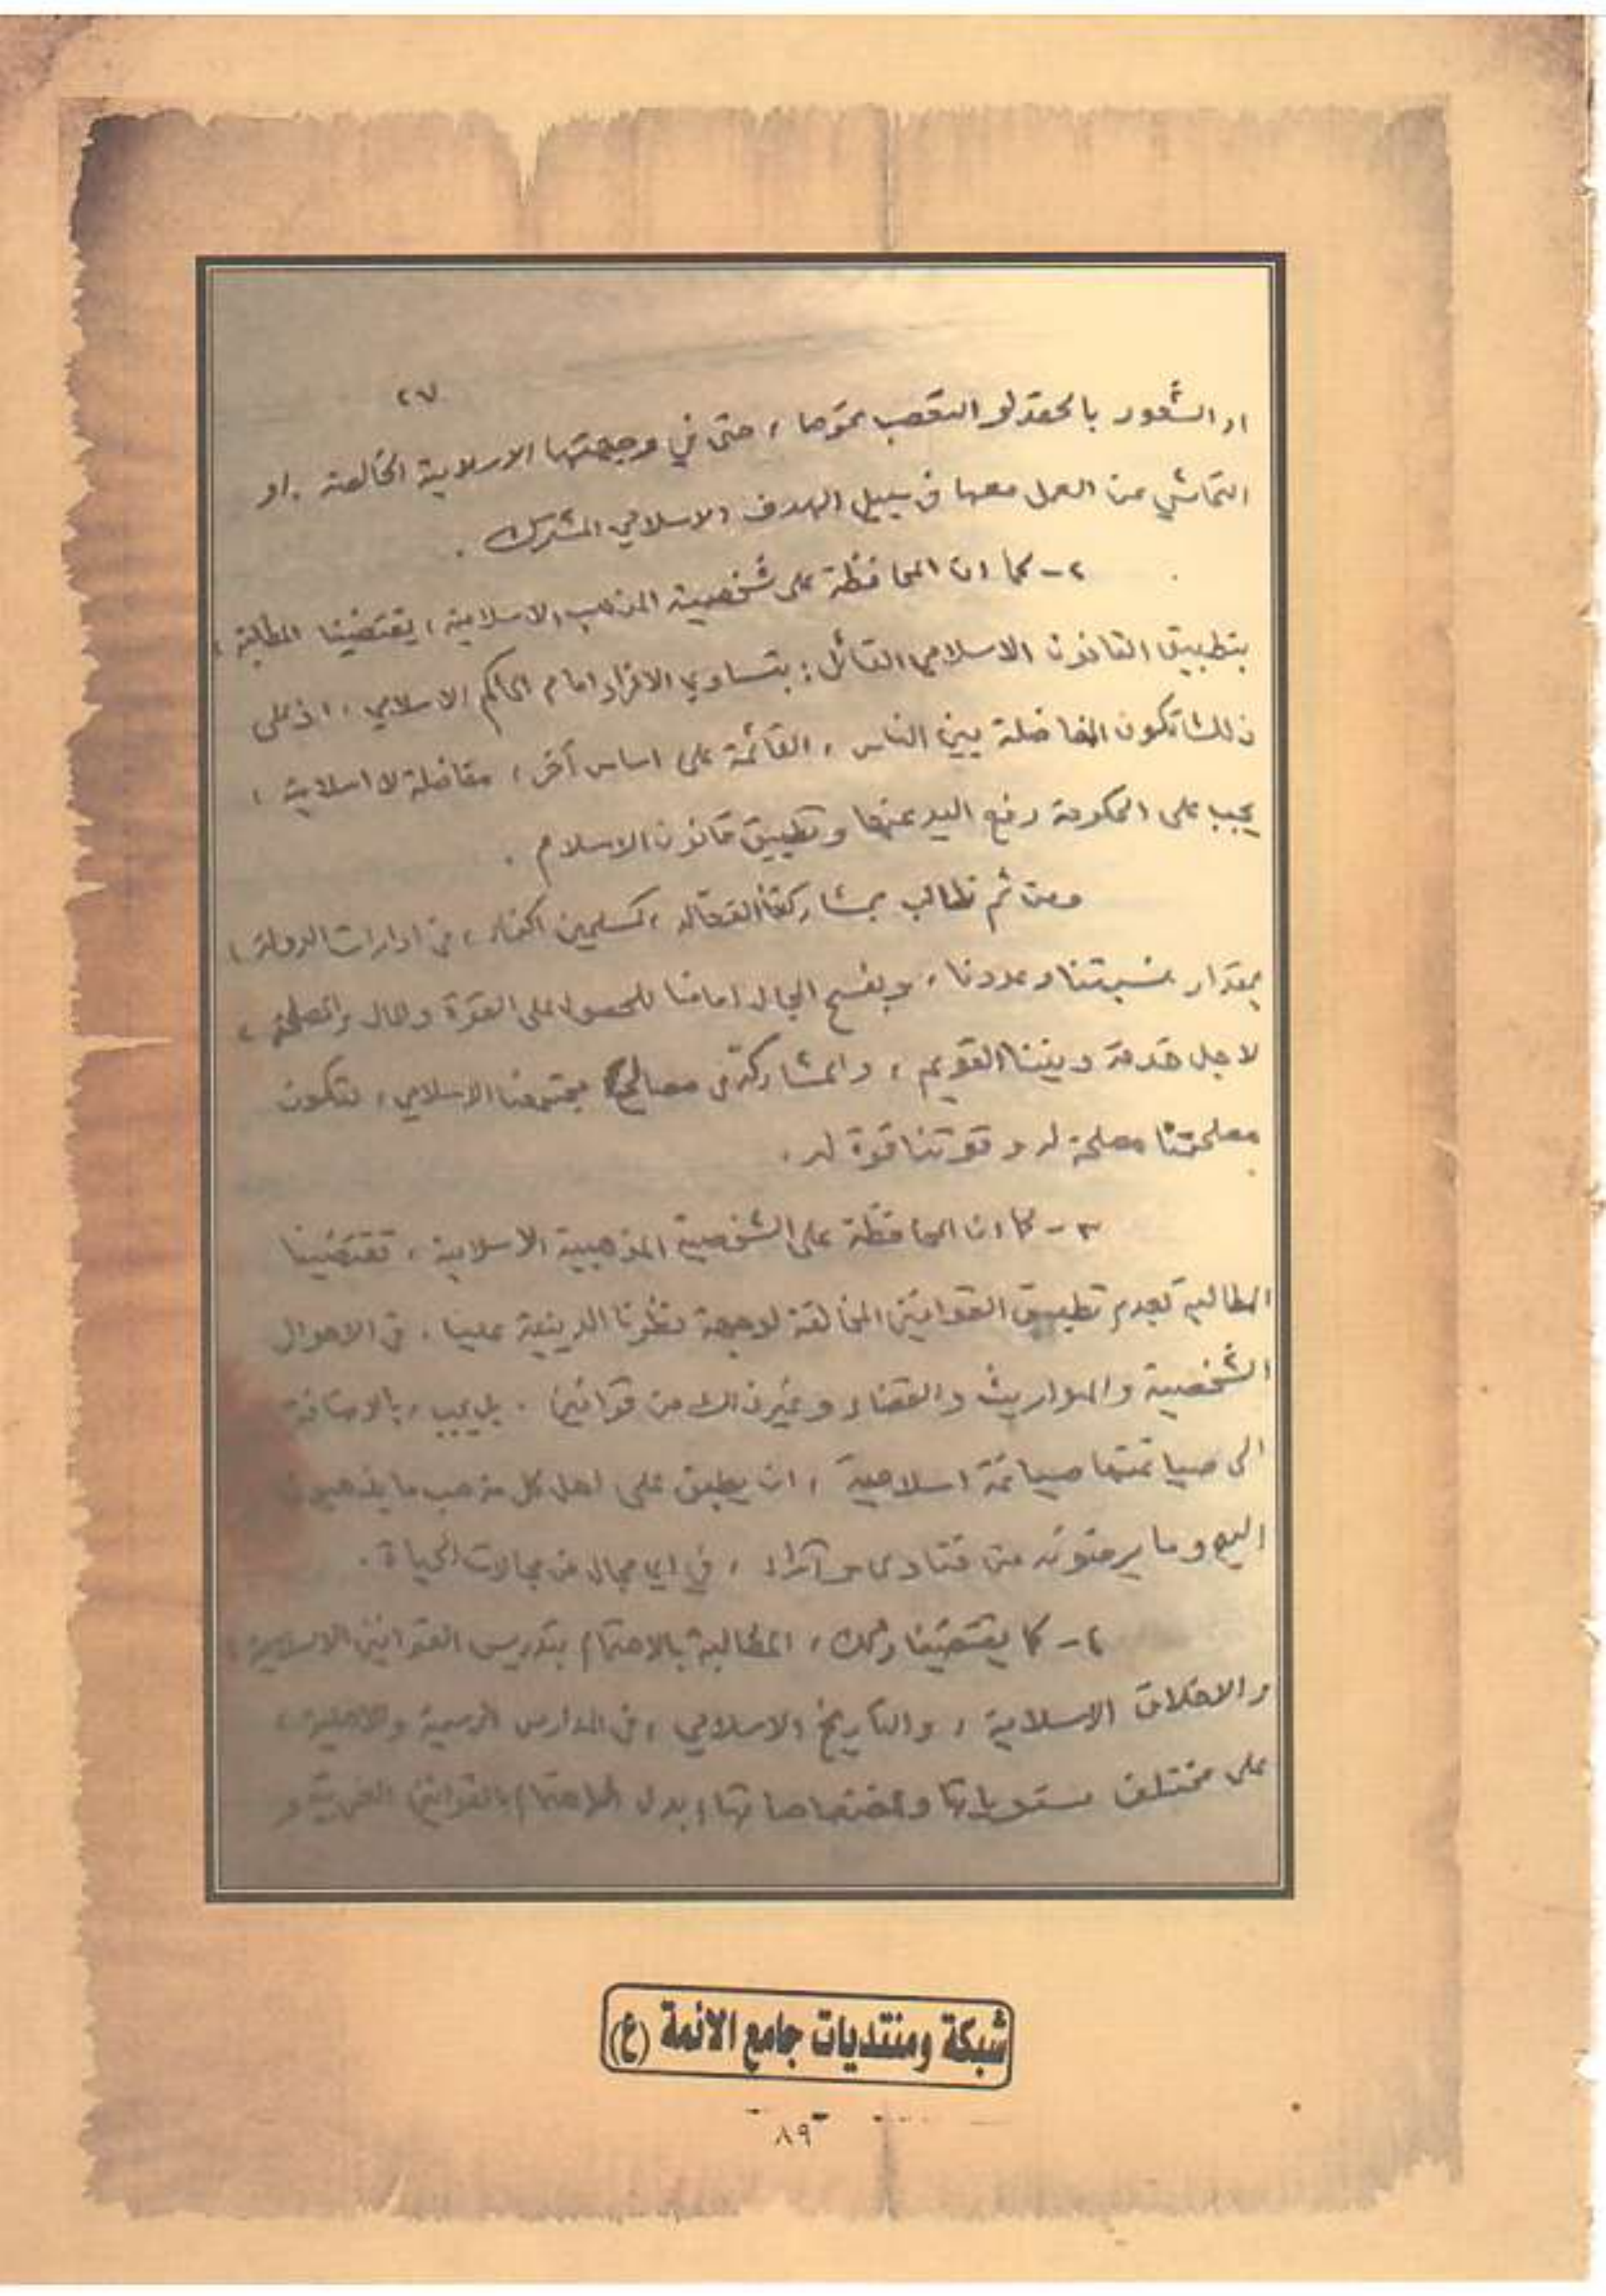 ٢٧
او الشعور بالحقد او التعصب نحوها ، حتى في وجهتها الاسلامية الخالصة . او
التحاشي عن العمل معها في سبيل الهدف الاسلامي المشترك .
٢ - كما ان المحافظة على شخصية المذهب الاسلامية ، يقتضينا المطالبة ،
بتطبيق القانون الاسلامي القائل : بتساوي الافراد امام الحاكم الاسلامي ، اذ على
ذلك تكون المفاضلة بين الناس ، القائمة على اساس آخر ، مفاضلة لا اسلامية ،
يجب على الحكومة رفع اليد عنها وتطبيق قانون الاسلام .
ومن ثم نطالب بمشاركتنا الفعالة ، كمسلمين اكفاء ، في ادارات الدولة ،
بمقدار نسبتنا وعددنا ، وبفسح المجال امامنا للحصول على القوة والمال والمصلحة ،
لاجل خدمة ديننا القويم ، والمشاركة في مصالح مجتمعنا الاسلامي ، لتكون
مصلحتنا مصلحة له وقوتنا قوة له .
٣ - كما ان المحافظة على الشخصية المذهبية الاسلامية ، تقتضينا
المطالبة بعدم تطبيق القوانين المخالفة لوجهة نظرنا الدينية علينا ، في الاحوال
الشخصية والمواريث والقضاء وغير ذلك من قوانين . بل يجب ، بالاضافة
الى صياغتها صياغة اسلامية ، ان يطبق على اهل كل مذهب ما يذهبون
اليه وما يرضونه من فتاوى وآراء ، في اي مجال من مجالات الحياة .
٤ - كما يقتضينا ذلك ، المطالبة بالاهتمام بتدريس القوانين الاسلامية ،
والاخلاق الاسلامية ، والتاريخ الاسلامي ، في المدارس الرسمية والاهلية ،
على مختلف مستوياتها واختصاصاتها ، بدل الاهتمام بالقوانين الغربية و
شبكة ومنتديات جامع الائمة (ع)
٨٩